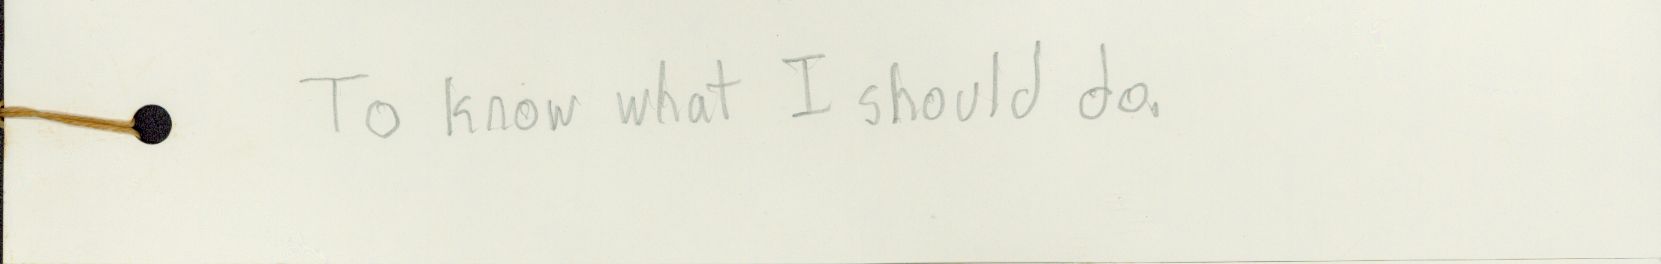 To know what I should do.